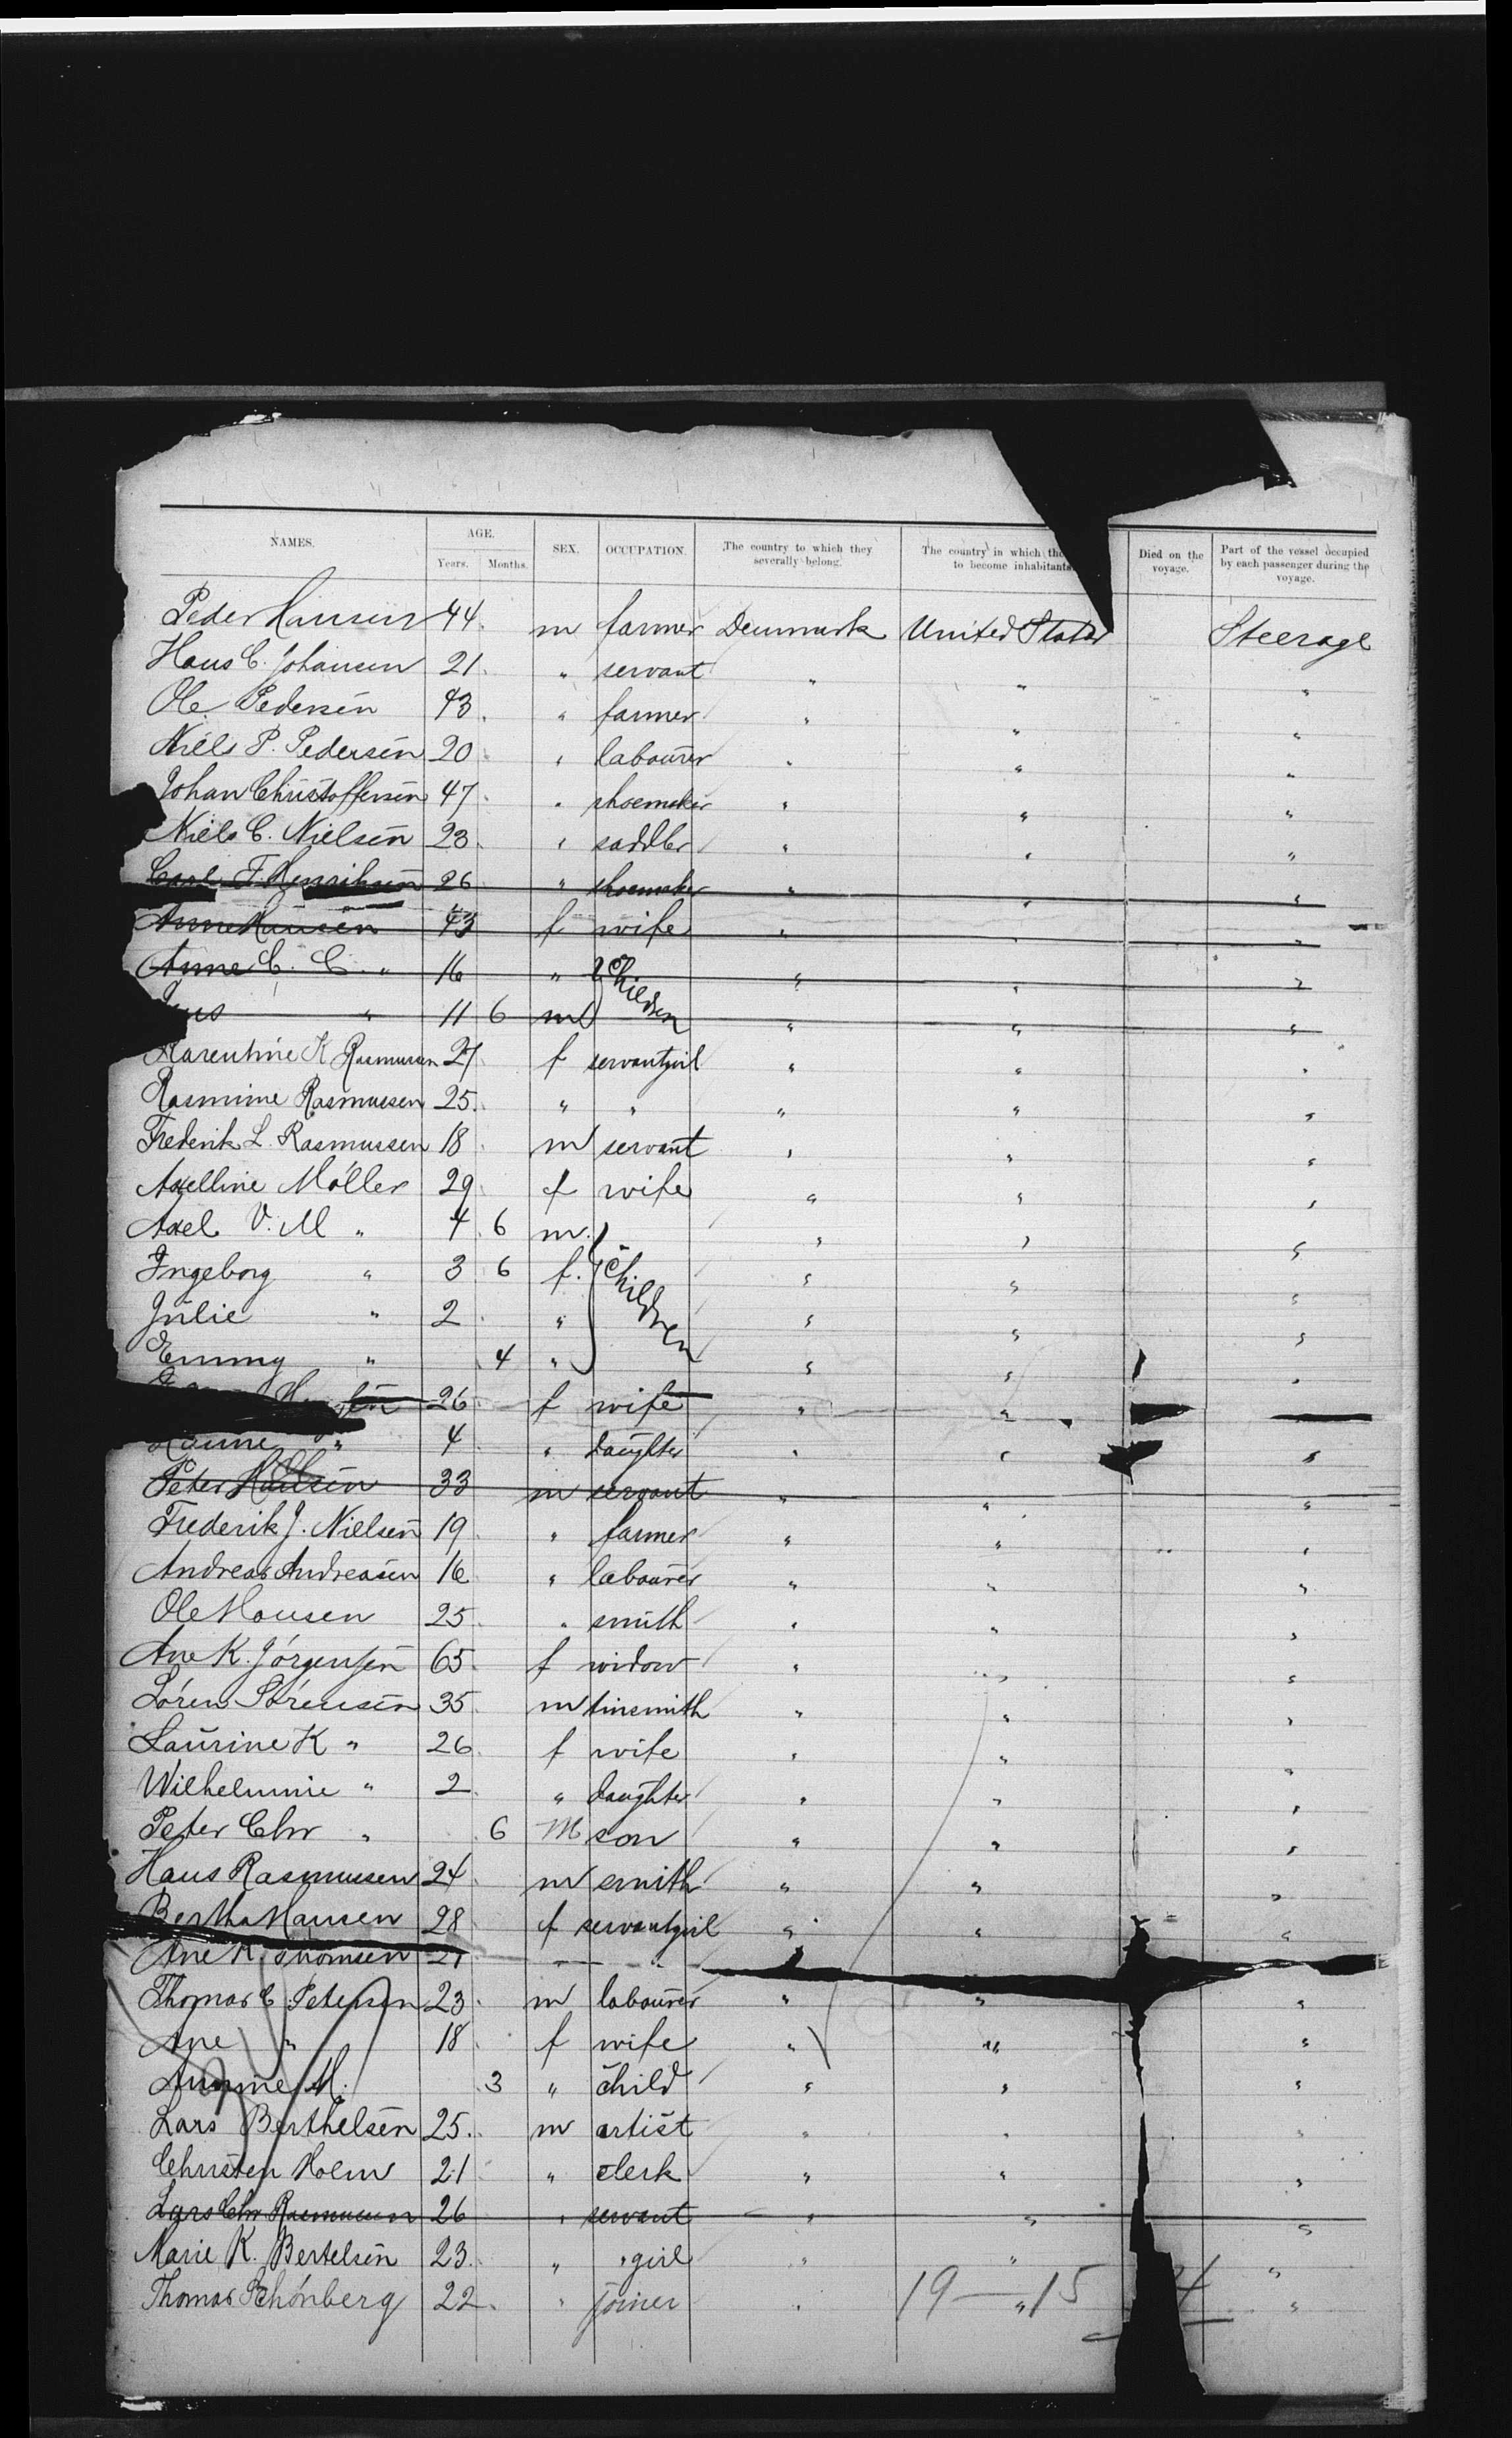 NAMES. AGE. SEX. OCCUPATION. The country to which they severally belong. The country in which the to become inhabitants Died on the voyage. Part of the vessel occupied by each passenger during the voyage.
Years. Months.
Peder Hansen 44 m farmer Denmark United States Steerage
Hans C. Johansen 21 " servant " " "
Ole Pedersen 43 " farmer " " "
Niels P. Pedersen 20 " labourer " " "
Johan Christoffersen 47 " shoemaker " " "
Niels C. Nielsen 23 " saddler " " "
Carl F. Henriksen 26 " shoemaker " " "
Anne Hansen 43 f wife " " "
Anne C. C. " 16 " Children " " "
" 11 6 m " " "
K Rasmussen 27 f servantgirl " " "
Rasmine Rasmussen 25 " " " " "
Frederik L. Rasmussen 18 m servant " " "
Axelline Möller 29 f wife " " "
Axel V. M " 4 6 m. Children " " "
Ingeborg " 3 6 f. " " "
Julie " 2 " " " "
Emmy " 4 " " " "
26 f wife " "
Hanne " 4 " daughter " " "
Peter 33 m servant " " "
Frederik J. Nielsen 19 " farmer " " "
Andreas Andreasen 16 " labourer " " "
Ole Hansen 25 " smith " " "
Ane K. Jörgensen 65 f widow " " "
Sören Sörensen 35 m tinsmith " " "
Laurine K " 26 f wife " " "
Wilhelmine " 2 " daughter " " "
Peter Chr " 6 M son " " "
Hans Rasmussen 24 m smith " " "
Bertha Hansen 28 f servantgirl " " "
Ane K. Thomsen 21 " "
Thomas C. Petersen 23 m labourer " " "
Ane " 18 f wife " " "
M. 3 " child " " "
Lars Berthelsen 25 m artist " " "
Christen Holm 21 " clerk " " "
Lars Chr Rasmussen 26 " servant " " "
Marie K. Bertelsen 23 " " girl " " "
Thomas Schönberg 22 " joiner " " "
19 — 15